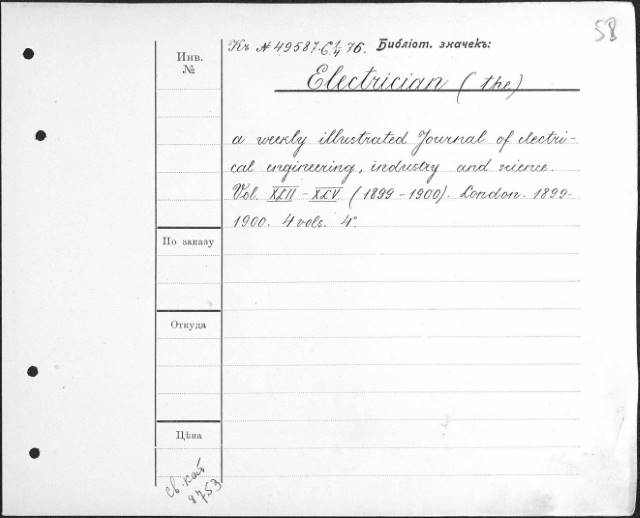 58
Къ № 49587. С 1/4 76. Библіот. значекъ:
Инв.
№
Electrician (the)
a weekly illustrated Journal of electri-
cal engineering, industry and science.
Vol. XLII - XLV (1899 - 1900). London. 1899-
1900. 4 vols. 4°
По заказу
Откуда
Цѣна
Св. кат
8753